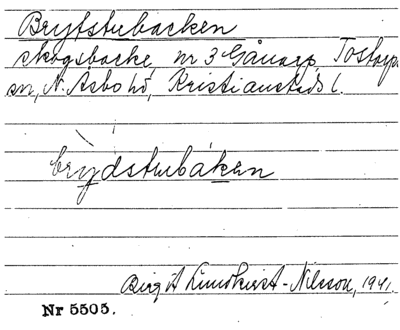 Brytstubacken
skogsbacke, nr 3 Gånarp, Tåstarps
sn, N. Åsbo hd, Kristianstads l.
brydstubakɘn
Birgit Lundkvist-Nilsson, 1941.
Nr 5505.